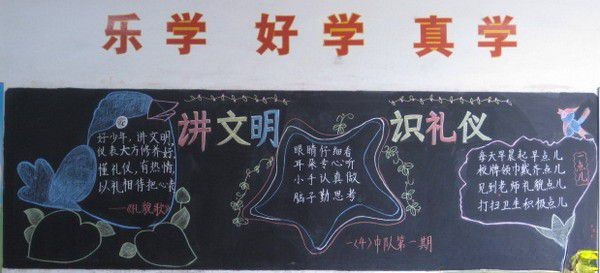 乐学 好学 真学
讲文明 识礼仪
好少年,讲文明,
仪表大方修养好,
懂礼仪,有热情,
以礼相待把心表
——《礼貌歌》
眼睛仔细看
耳朵专心听
小手认真做
脑子勤思考
一〈4〉中队第一期
一点儿
每天早晨起早点儿
校牌领巾戴齐点儿
见到老师礼貌点儿
打扫卫生积极点儿